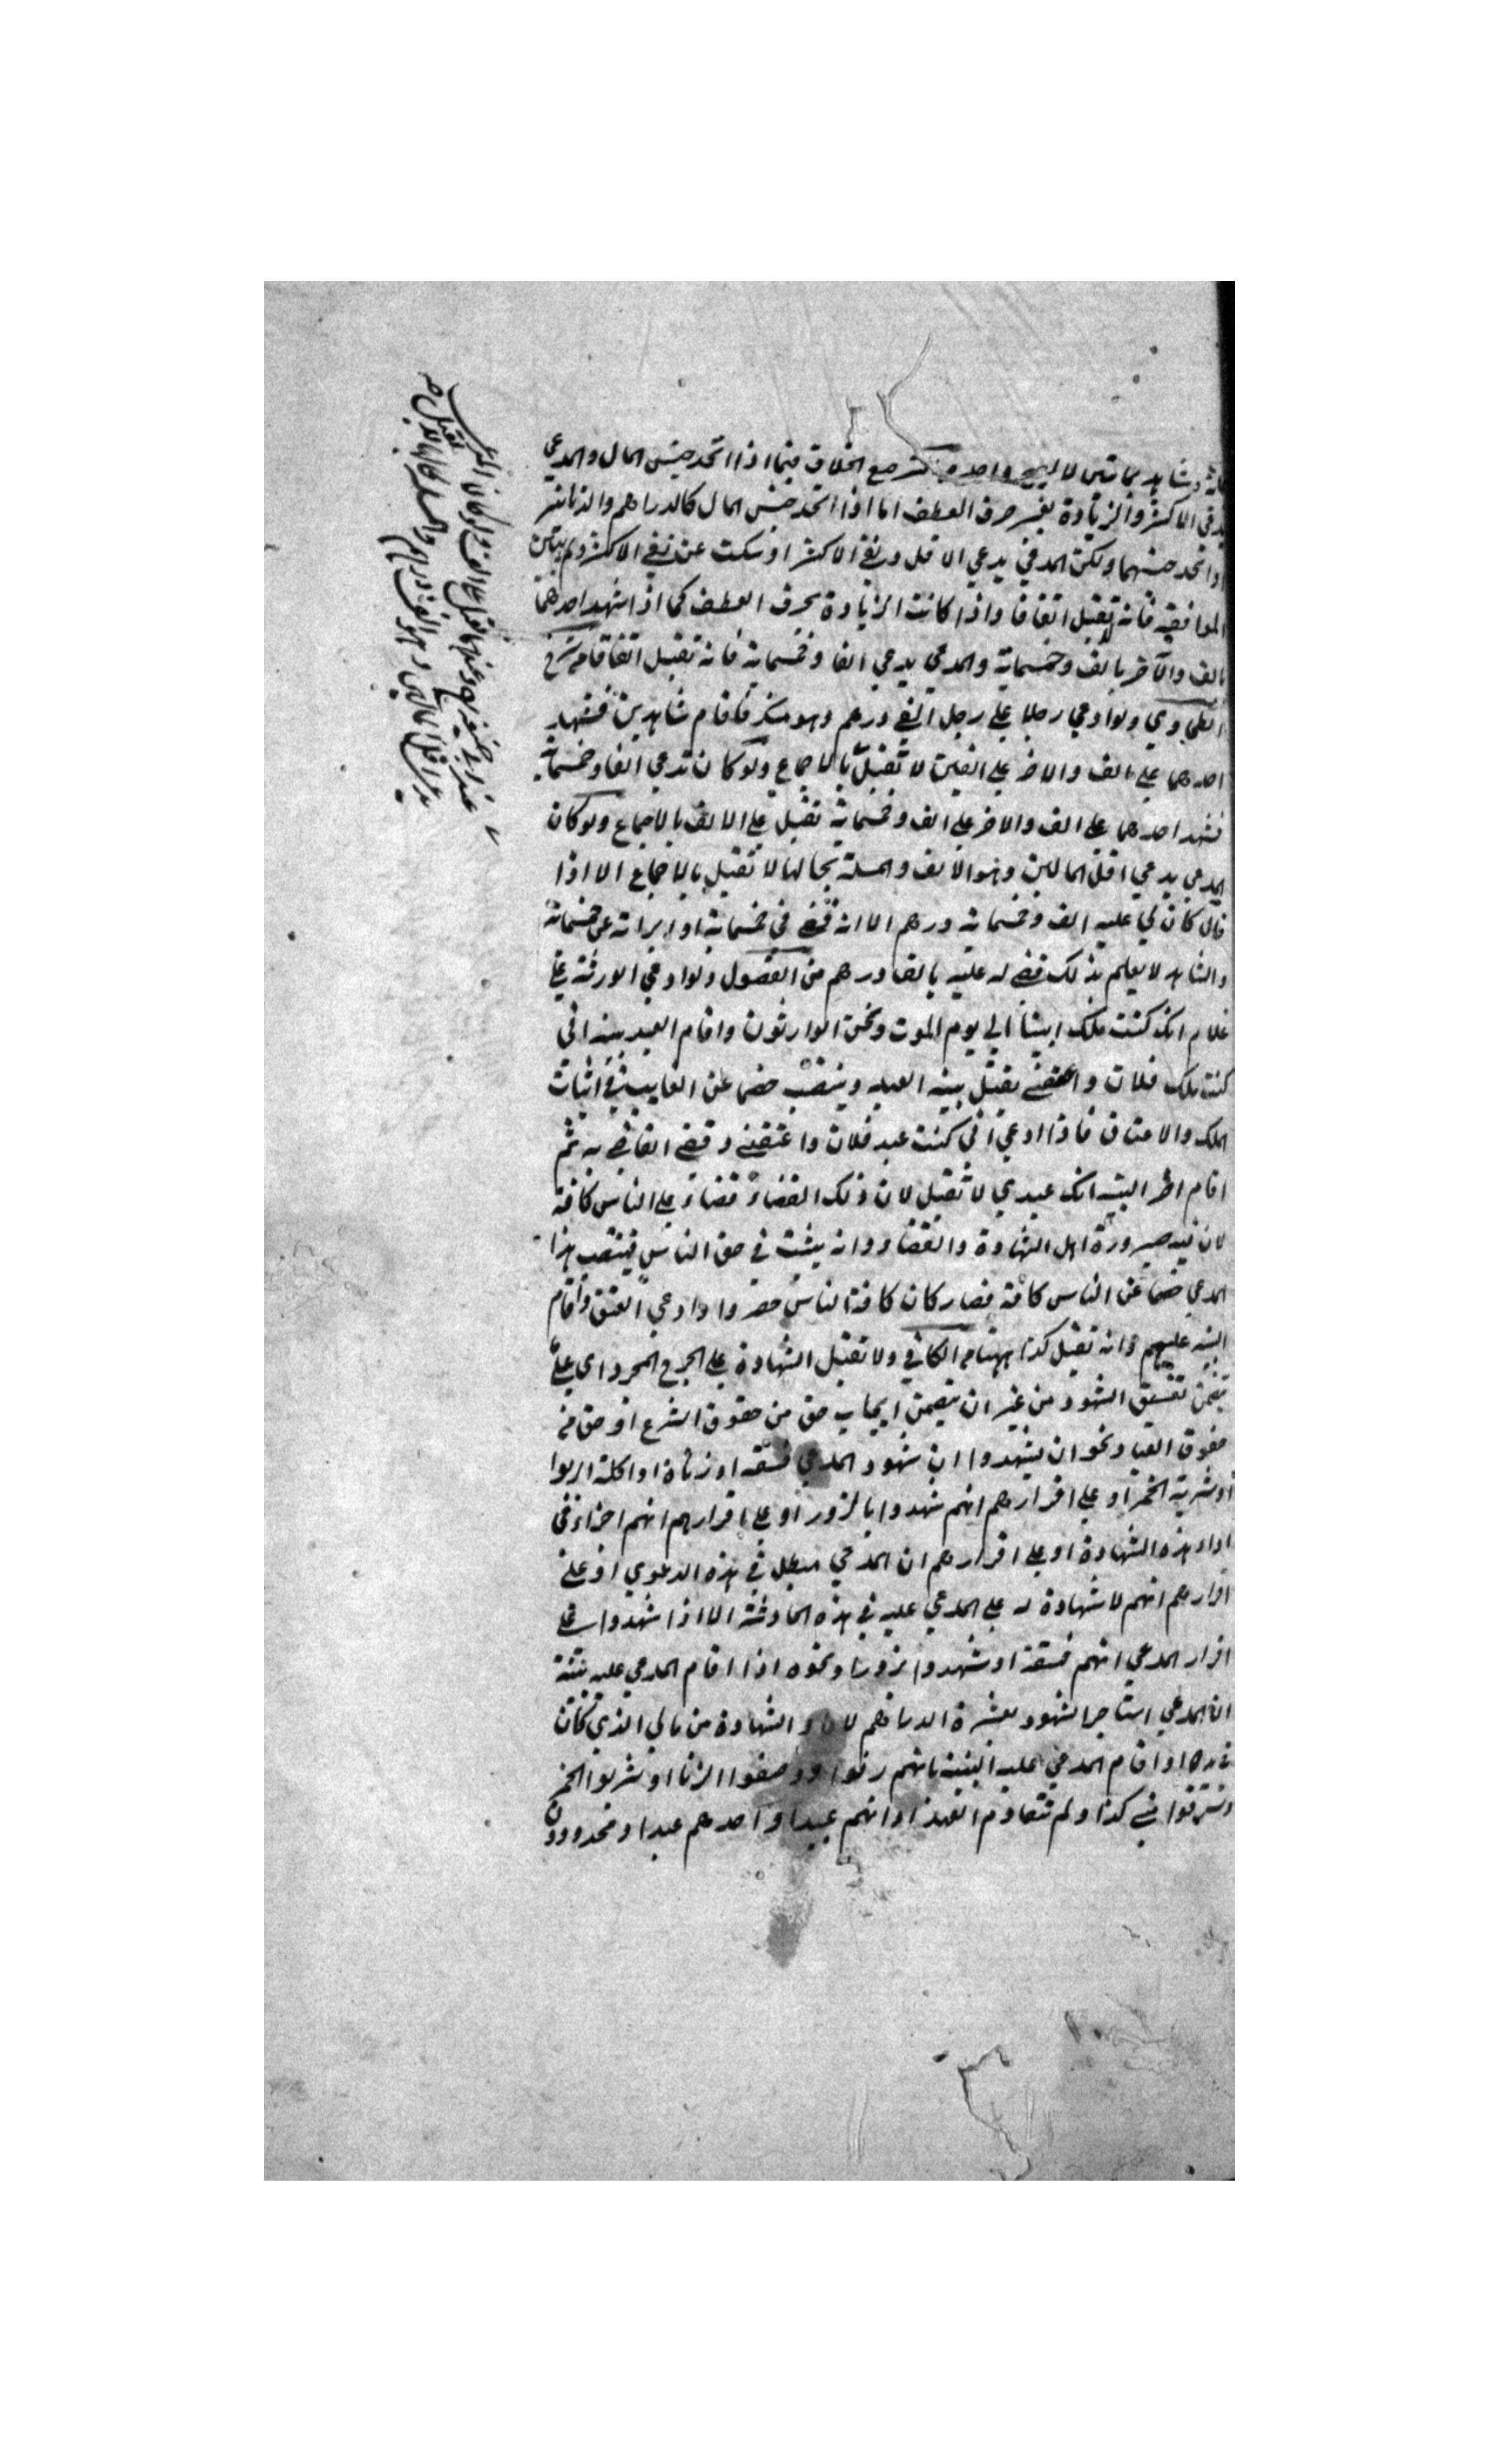 مائة وشاهد بمائتين لا يصح واحدة موضع الخلاف فيما اذا اتحد جنس المال والمدعي
يدعي الاكثر والزيادة بغير حرف العطف اما اذا اتحد جنس المال كالدراهم والدنانير
او اتحد جنسهما ولكن المدعي يدعي الاقل ونفي الاكثر او سكت عن نفي الاكثر ولم يبين
الموافقة فانه تقبل اتفاقا واذا كانت الزيادة بحرف العطف كما اذا شهد احدهما
بالف والآخر بالف وخمسماية والمدعي يدعي الفا وخمسماية فانه تقبل اتفاقا من شرح
الطحاوي ولو ادعي رجلا علي رجل الفي درهم وهو منكر فاقام شاهدين فشهد
احدهما علي الف والاخر علي الفين لا تقبل بالاجماع ولو كان يدعي الفا وخمسماية
فشهد احدهما علي الف والاخر علي الف وخمسماية تقبل علي الالف بالاجماع ولو كان
المدعي يدعي اقل المالين وهو الالف والمسئلة بحالها لا تقبل بالاجماع الا اذا
قال كان لي عليه الف وخمسماية درهم الا انه قضي في خمسماية او ابراته عن خمسماية
والشاهد لا يعلم بذلك قضي له عليه بالف درهم من الفصول ولو ادعي الورثة علي
غلام انك كنت ملك ابينا الي يوم الموت ونحن الوارثون واقام العبد بينه اني
كنت ملك فلان واعتقني يقبل بينه العبد وينصب خصما عن الغايب في اثبات
الملك والاعتاق فاذا ادعي اني كنت عبد فلان واعتقني وقضي القاضي به ثم
اقام اخر البينه انك عبدي لا تقبل لان ذلك القضاء قضاء علي الناس كافة
لان فيه صيرورة اهل الشهادة والقضاء وانه يثبت في حق الناس فينتصب هذا
المدعي خصما عن الناس كافة فصار كان كافة الناس حضروا وادعي العتق واقام
البينه عليهم وانه تقبل كذا ههنا من الكافي ولا تقبل الشهادة علي الجرح المجرد اي علي
تضمن تفسيق الشهود من غير ان يتضمن ايجاب حق من حقوق الشرع او حق من
حقوق العباد نحو ان يشهدوا ان شهود المدعي فسقه او زناة او اكلة الربوا
او شربة الخمر او علي اقرارهم انهم شهدوا بالزور او علي اقرارهم انهم اجراء في
اداء هذه الشهادة او علي اقرارهم ان المدعي مبطل في هذه الدعوي او علي
اقرارهم انهم لا شهادة له علي المدعي عليه في هذه الحادثة الا اذا شهدوا علي
اقرار المدعي انهم فسقة او شهدوا بزور او نحوه اذا اقام المدعي عليه بينة
ان المدعي استاجر الشهود بعشرة الدراهم لاداء الشهادة من مالي الذي كان
في يده او اقام المدعي عليه البينة بانهم زنوا ووصفوا الزنا او شربوا الخمر
وسرقوا مني كذا ولم يتقادم العهد او انهم عبيد او احدهم عبد او محدودون
عند ابي حنيفة وعندهما تقبل علي الالف ولو كان المدعي
يدعي اقل المالين وهو الف درهم والمسئلة بحالها لا تقبل